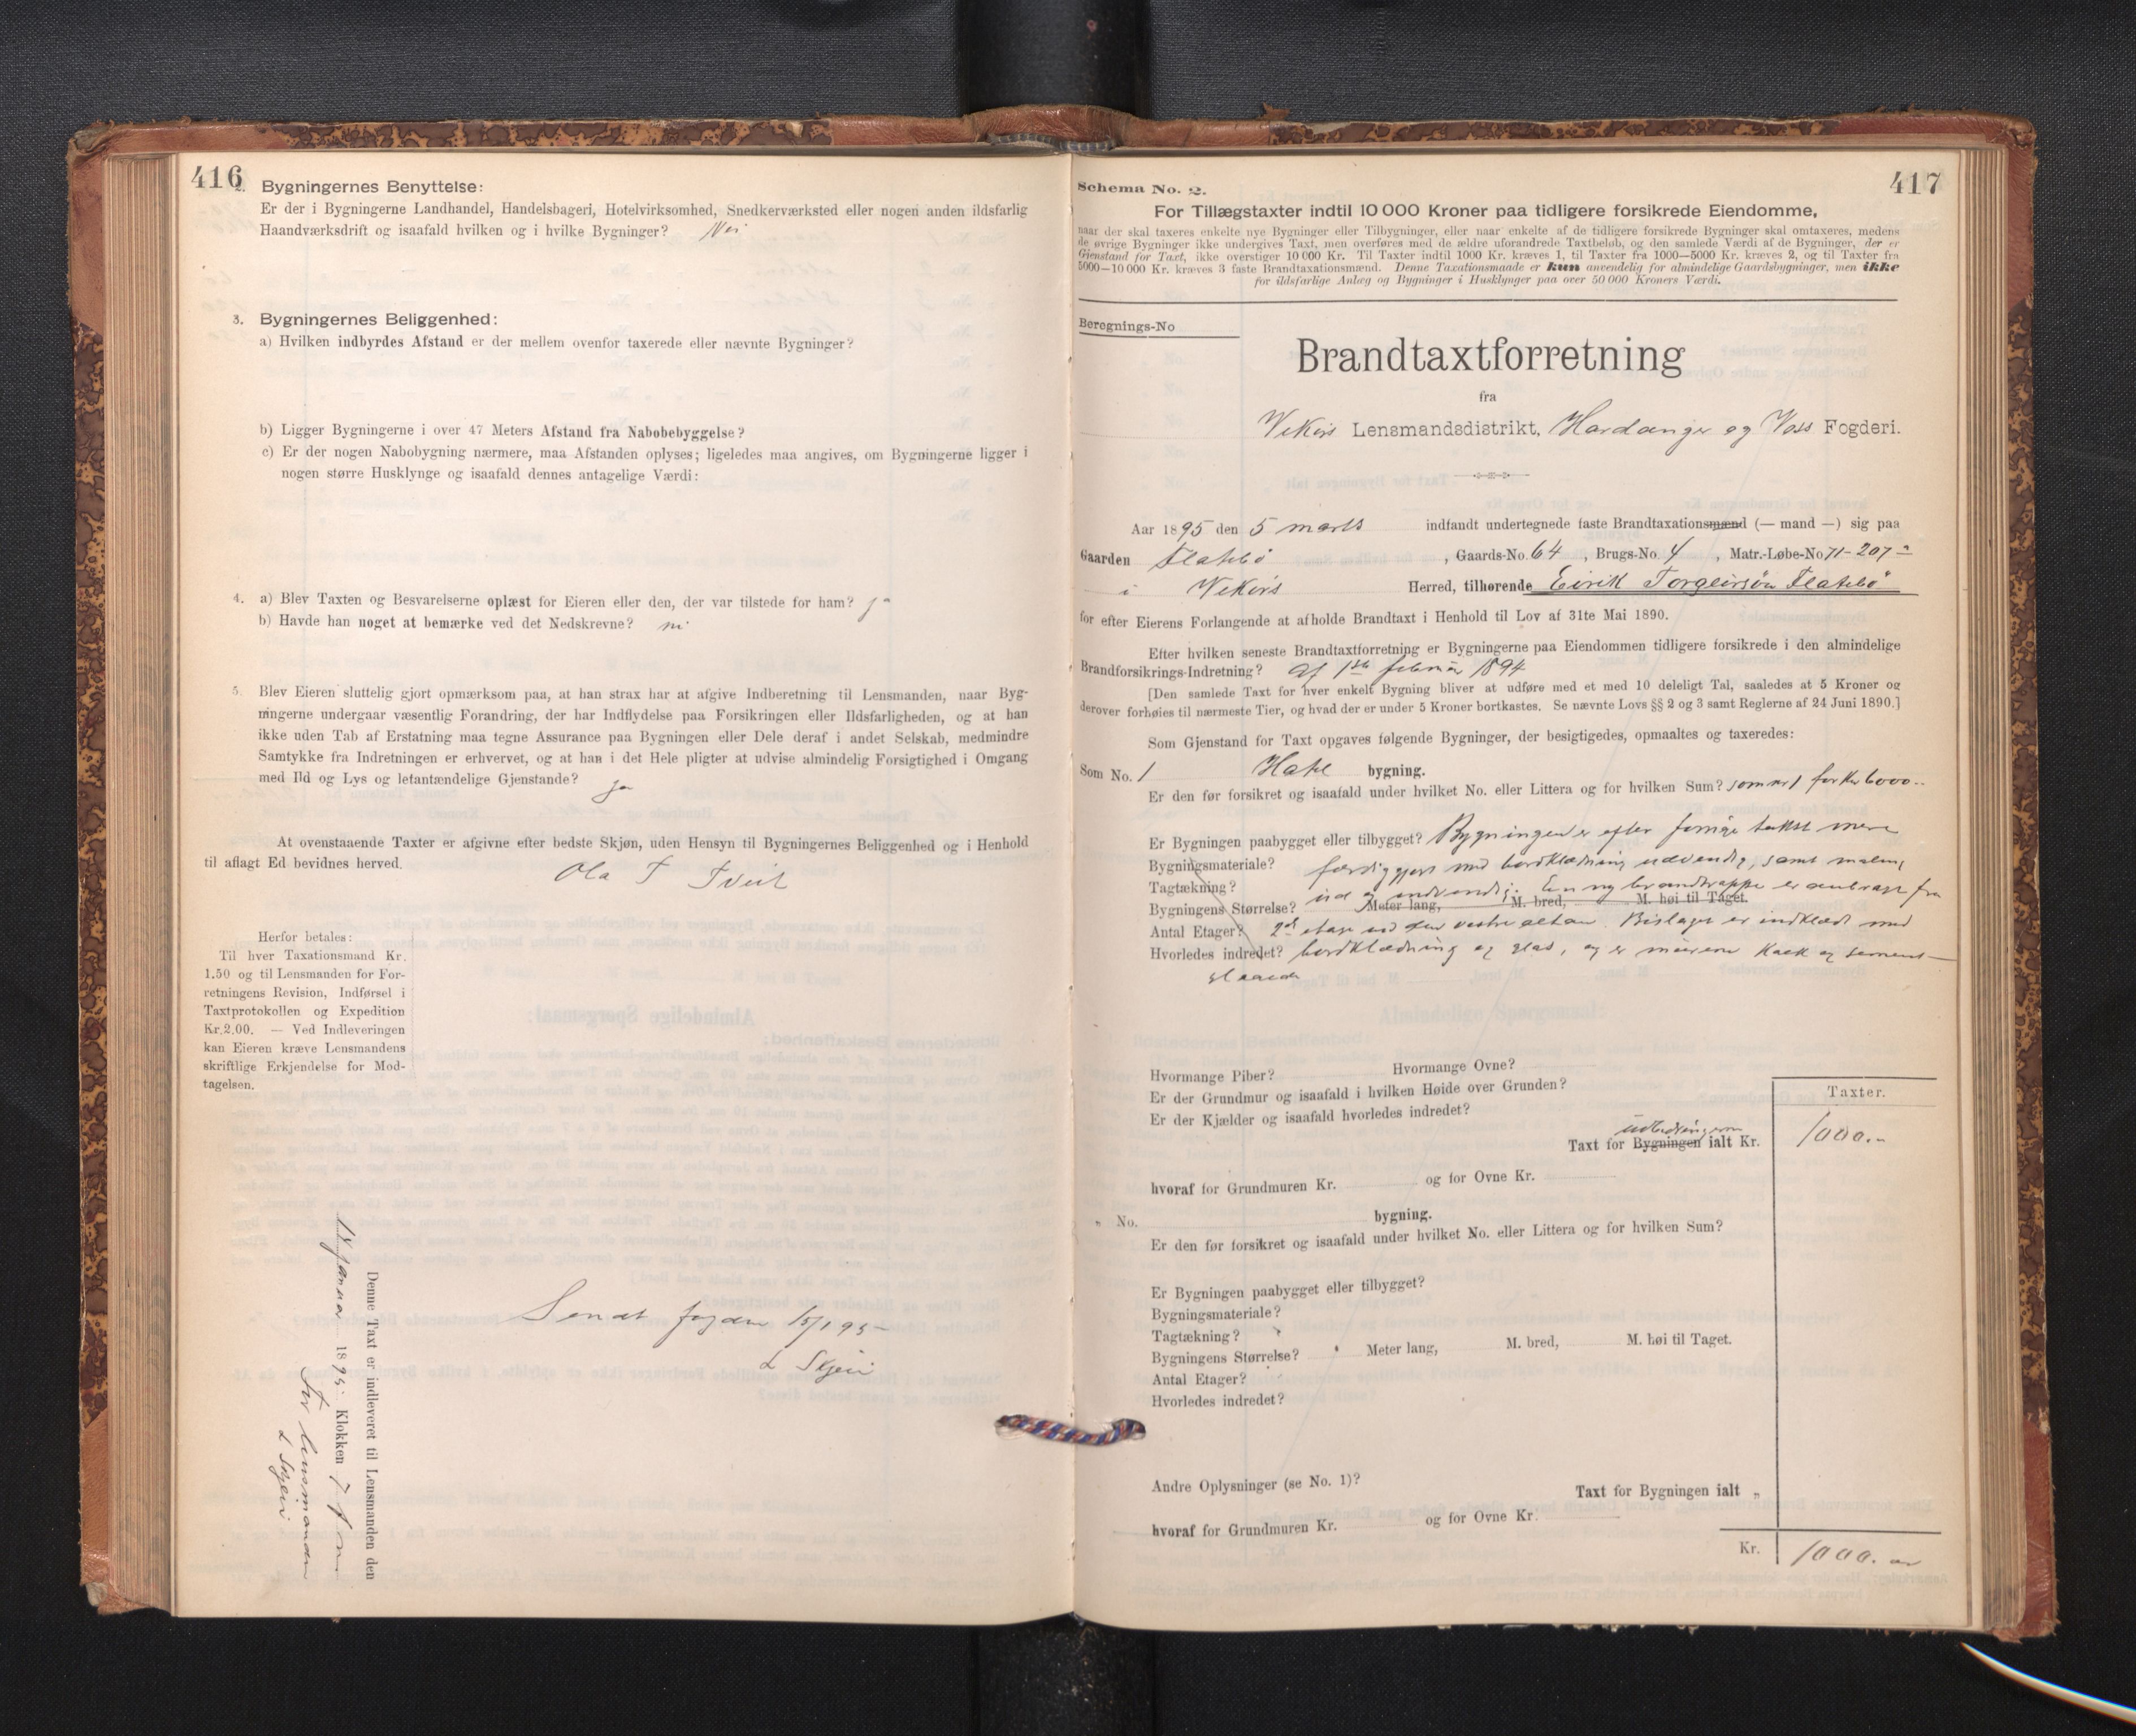 416
2. Bygningernes Benyttelse:
Er der i Bygningerne Landhandel, Handelsbageri, Hotelvirksomhed, Snedkerværksted eller nogen anden ildsfarlig
Haandværksdrift og isaafald hvilken og i hvilke Bygninger? Nei
3. Bygningernes Beliggenhed:
a) Hvilken indbyrdes Afstand er der mellem ovenfor taxerede eller nævnte Bygninger?
b) Ligger Bygningerne i over 47 Meters Afstand fra Nabobebyggelse?
c) Er der nogen Nabobygning nærmere, maa Afstanden oplyses; ligeledes maa angives, om Bygningerne ligger i
nogen større Husklynge og isaafald dennes antagelige Værdi:
4. a) Blev Taxten og Besvarelserne oplæst for Eieren eller den, der var tilstede for ham? ja
b) Havde han noget at bemærke ved det Nedskrevne? nei
5. Blev Eieren sluttelig gjort opmærksom paa, at han strax har at afgive Indberetning til Lensmanden, naar Byg-
ningerne undergaar væsentlig Forandring, der har Indflydelse paa Forsikringen eller Ildsfarligheden, og at han
ikke uden Tab af Erstatning maa tegne Assurance paa Bygningen eller Dele deraf i andet Selskab, medmindre
Samtykke fra Indretningen er erhvervet, og at han i det Hele pligter at udvise almindelig Forsigtighed i Omgang
med Ild og Lys og letantændelige Gjenstande? ja
At ovenstaaende Taxter er afgivne efter bedste Skjøn, uden Hensyn til Bygningernes Beliggenhed og i Henhold
til aflagt Ed bevidnes herved.
Ola T Tveit
Herfor betales:
Til hver Taxationsmand Kr.
1.50 og til Lensmanden for For-
retningens Revision, Indførsel i
Taxtprotokollen og Expedition
Kr. 2.00. — Ved Indleveringen
kan Eieren kræve Lensmandens
skriftlige Erkjendelse for Mod-
tagelsen.
Sendt fogden 15/1 95
L Skjeie
Denne Taxt er indleveret til Lensmanden den
Januar 1895 Klokken 7 fm
For lensmanden
L Skjeie
417
Schema No. 2.
For Tillægstaxter indtil 10 000 Kroner paa tidligere forsikrede Eiendomme,
naar der skal taxeres enkelte nye Bygninger eller Tilbygninger, eller naar enkelte af de tidligere forsikrede Bygninger skal omtaxeres, medens
de øvrige Bygninger ikke undergives Taxt, men overføres med de ældre uforandrede Taxtbeløb, og den samlede Værdi af de Bygninger, der er
Gjenstand for Taxt, ikke overstiger 10 000 Kr. Til Taxter indtil 1000 Kr. kræves 1, til Taxter fra 1000—5000 Kr. kræves 2, og til Taxter fra
5000—10 000 Kr. kræves 3 faste Brandtaxationsmænd. Denne Taxationsmaade er kun anvendelig for almindelige Gaardsbygninger, men ikke
for ildsfarlige Anlæg og Bygninger i Husklynger paa over 50 000 Kroners Værdi.
Beregnings-No
Brandtaxtforretning
fra
Vikørs Lensmandsdistrikt, Hardanger og Voss Fogderi.
Aar 1895 den 5 marts indfandt undertegnede faste Brandtaxationsmænd (— mand —) sig paa
Gaarden Flatebø, Gaards-No. 64, Brugs-No. 4, Matr.-Løbe-No 71-207 a
i Vikørs Herred, tilhørende Eirik Torgeirsøn Flatebø
for efter Eierens Forlangende at afholde Brandtaxt i Henhold til Lov af 31te Mai 1890.
Efter hvilken seneste Brandtaxtforretning er Bygningerne paa Eiendommen tidligere forsikrede i den almindelige
Brandforsikrings-Indretning? af 1ste februar 1894
[Den samlede Taxt for hver enkelt Bygning bliver at udføre med et med 10 deleligt Tal, saaledes at 5 Kroner og
derover forhøies til nærmeste Tier, og hvad der er under 5 Kroner bortkastes. Se nævnte Lovs §§ 2 og 3 samt Reglerne af 24 Juni 1890.]
Som Gjenstand for Taxt opgaves følgende Bygninger, der besigtigedes, opmaaltes og taxeredes:
Som No. 1 Hotel bygning.
Er den før forsikret og isaafald under hvilket No. eller Littera og for hvilken Sum? som no 1 for Kr 6000..
Er Bygningen paabygget eller tilbygget? Bygningen er efter forrige takst mere
Bygningsmateriale? færdiggjort med bordklædning udvendig, samt maling
Tagtækning? ud og indvendig. En ny brandtrappe er anbragt fra
Bygningens Størrelse? Meter lang, M. bred, M. høi til Taget.
Antal Etager? 2den etage ved den vestre altan. Bislaget er indklædt med
Hvorledes indredet? bordklædning og glas, og er murene kalk og sement-
slaaede
Hvormange Piber? Hvormange Ovne?
Er der Grundmur og isaafald i hvilken Høide over Grunden?
Er der Kjælder og isaafald hvorledes indredet?
Taxter.
udbedringerne
Taxt for Bygningen ialt Kr. 1000.-
hvoraf for Grundmuren Kr. og for Ovne Kr.
" No. bygning.
Er den før forsikret og isaafald under hvilket No. eller Littera og for hvilken Sum?
Er Bygningen paabygget eller tilbygget?
Bygningsmateriale?
Tagtækning?
Bygningens Størrelse? Meter lang, M. bred, M. høi til Taget.
Antal Etager?
Hvorledes indredet?
Andre Oplysninger (se No. 1)?
Taxt for Bygningen ialt "
hvoraf for Grundmuren Kr. og for Ovne Kr.
Kr. 1000.